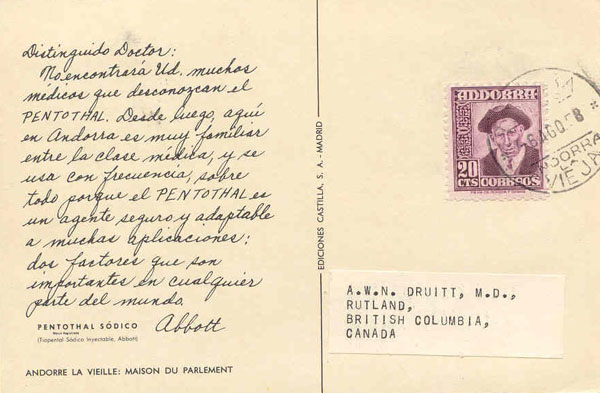 Distinguido Doctor:
No encontrará Ud. muchos
médicos que desconozcan el
PENTOTHAL. Desde luego, aquí
en Andorra es muy familiar
entre la clase médica, y se
usa con frecuencia, sobre
todo porque el PENTOTHAL es
un agente seguro y adaptable
a muchas aplicaciones:
dos factores que son
importantes en cualquier
parte del mundo.
Abbott
PENTOTHAL SÓDICO
Marca Registrada
(Tiopental Sódico Inyectable, Abbott)
ANDORRE LA VIEILLE: MAISON DU PARLEMENT
EDICIONES CASTILLA, S. A. - MADRID
ANDORRA
20
CTS CORREOS
AGO 58
ANDORRA
VIEJA
A.W.N. DRUITT, M.D.,
RUTLAND,
BRITISH COLUMBIA,
CANADA